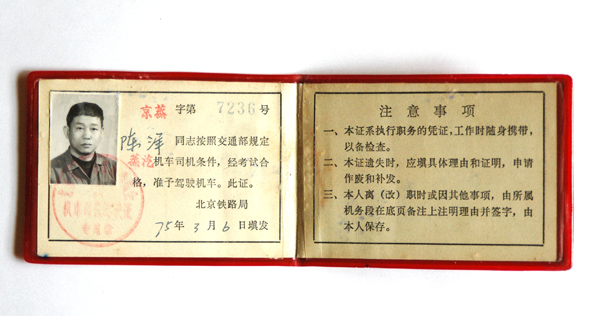 京蒸 字第 7236 号
陈泽 同志按照交通部规定
蒸汽机车司机条件，经考试合
格，准予驾驶机车。此证。
北京铁路局
75年3月6日填发
注意事项
一、本证系执行职务的凭证，工作时随身携带，
以备检查。
二、本证遗失时，应填具体理由和证明，申请
作废和补发。
三、本人离（改）职时或因其他事项，由所属
机务段在底页备注上注明理由并签字，由
本人保存。